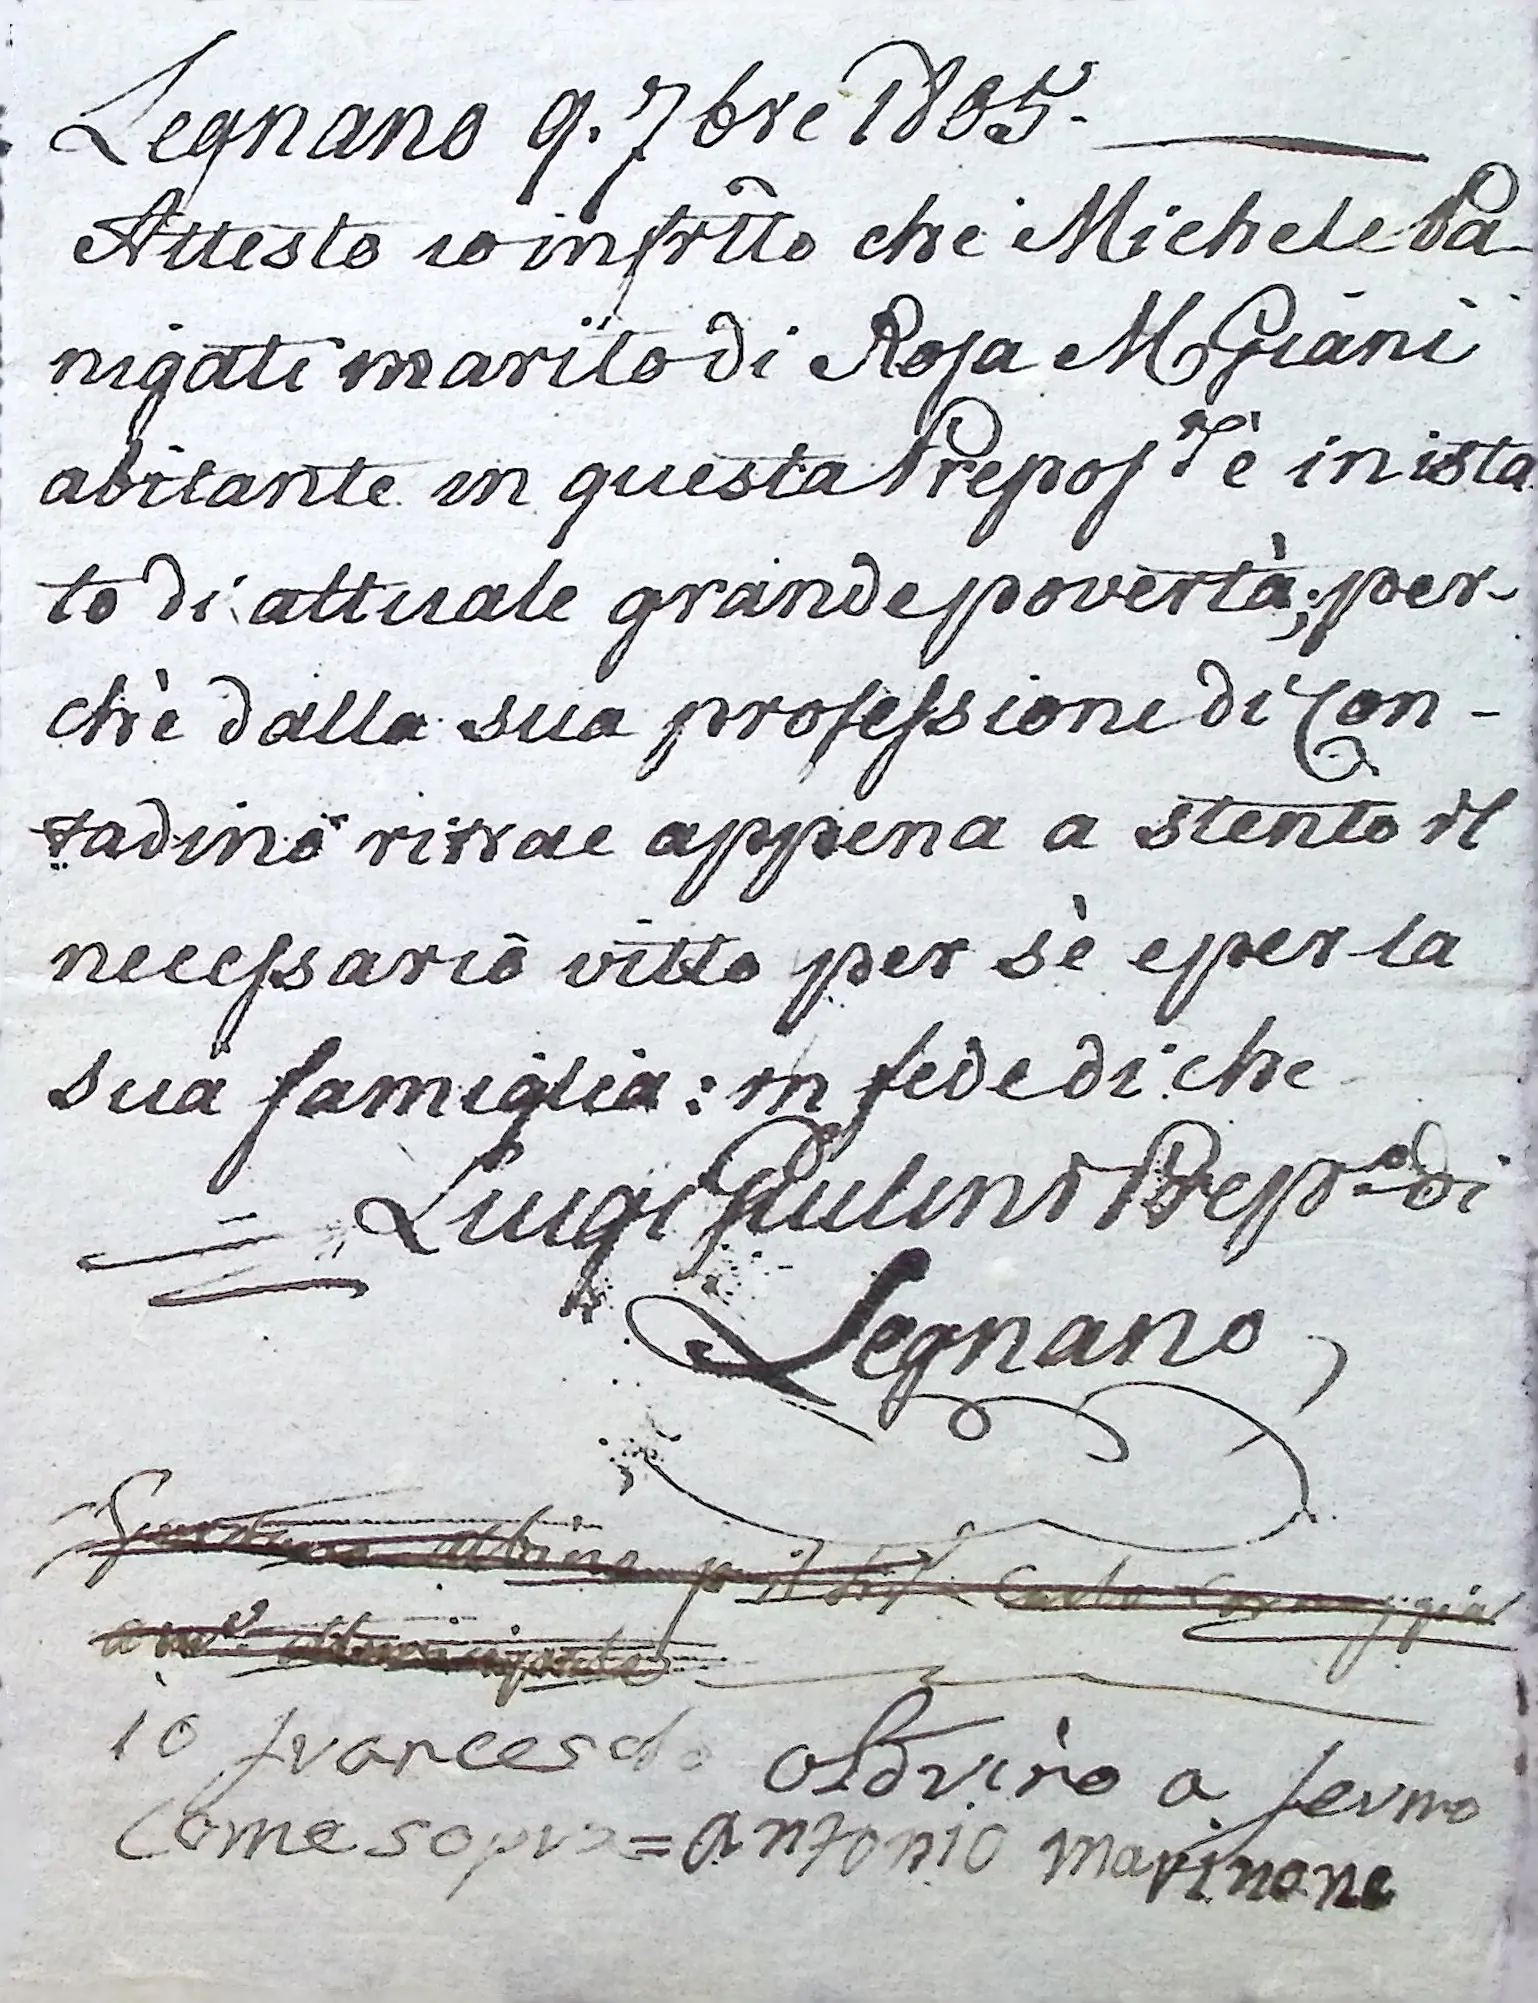 Legnano 9. 7bre 1805.
Attesto io infrtto che Michele Pa
nigati marito di Rosa Ma Giani
abitante in questa Preposra è in ista
to di attuale grande povertà; per-
chè dalla sua professione di Con-
tadino ritrae appena a stento il
necessario vitto per sè e per la
sua famiglia: in fede di che
Luigi Prepo di
Legnano
io francescho a fermo
Come sopra = Antonio marinone